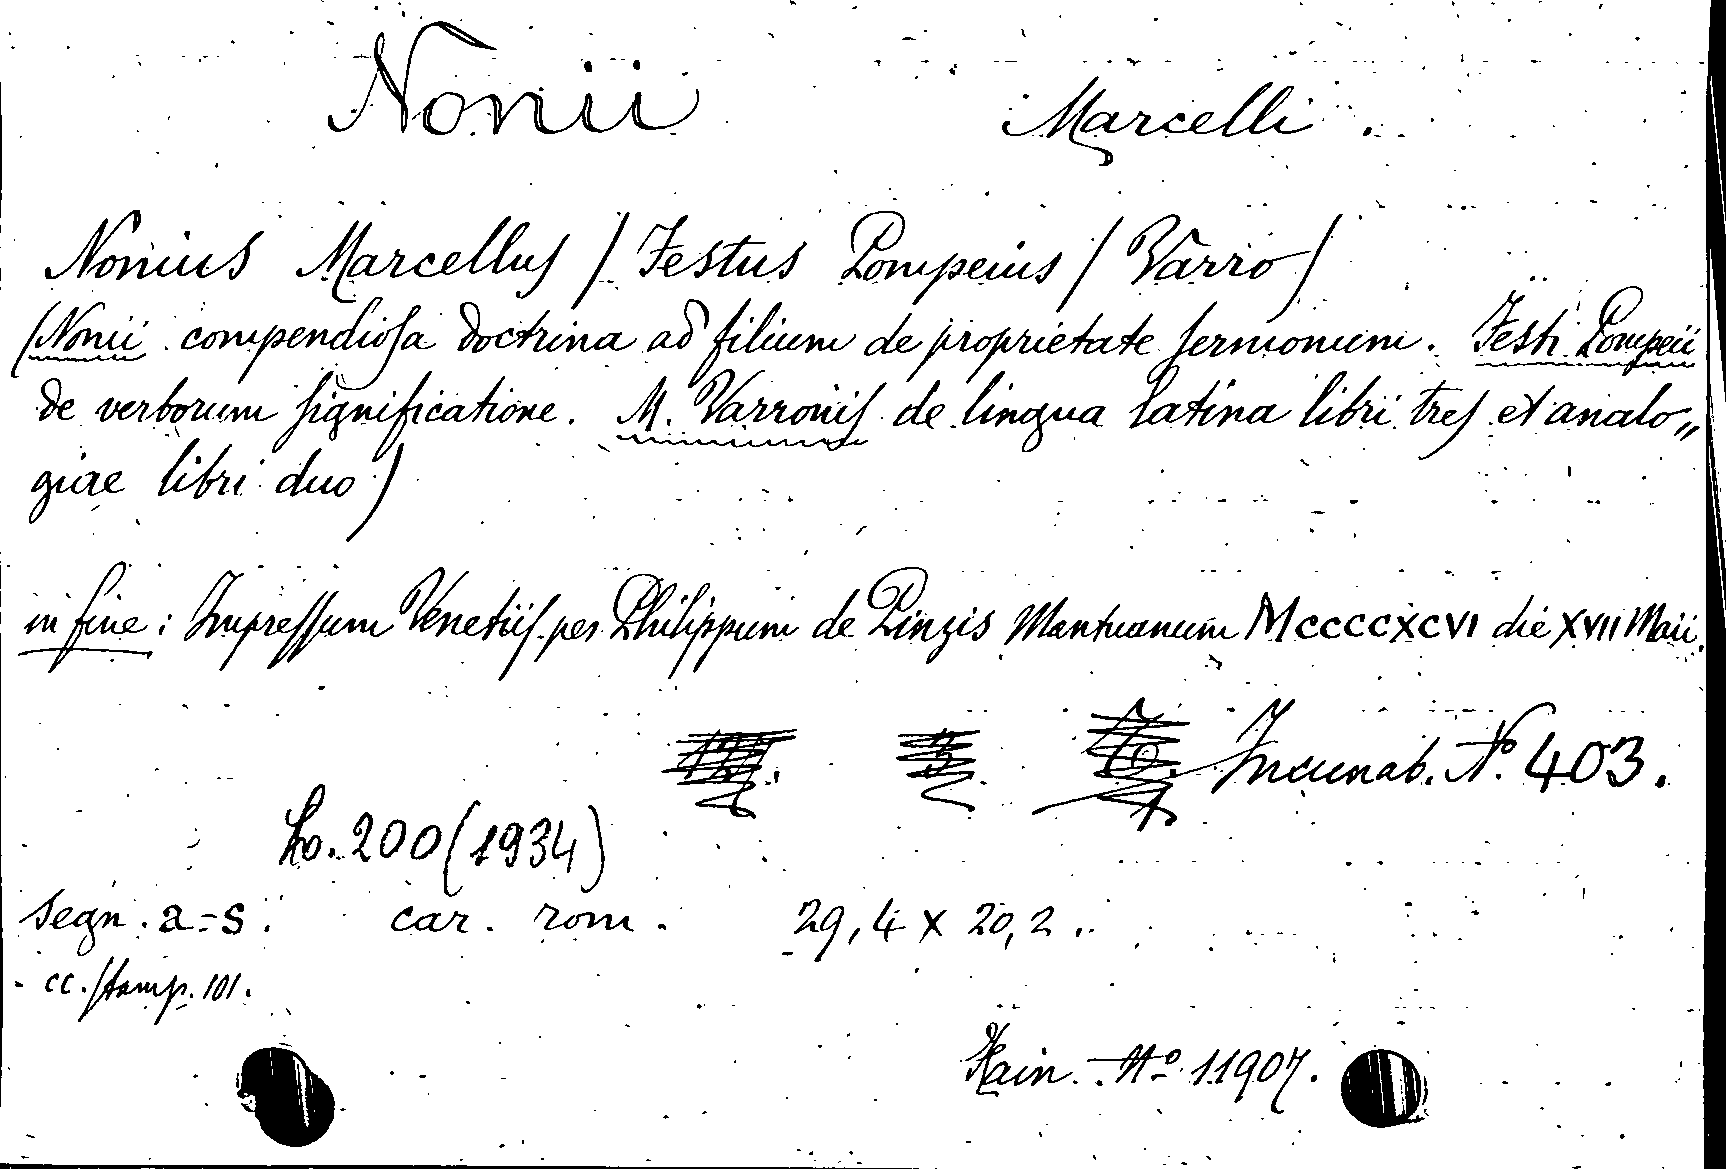 Nonii Marcelli.
Nonius Marcellus / Festus Pompeius / Varro /
(Nonii compendiosa doctrina ad filium de proprietate sermonum. Festi Pompeii
de verborum significatione. M. Varronis de lingua latina libri tres et analo„
giae libri duo)
in fine: Impressum Venetiis per Philippum de Pinzis Mantuanum MCCCCXCVI die XVII Maii.
Incunab. No. 403.
Lo. 200 (1934)
segn. a-s. car. rom. 29,4 x 20,2.
cc. stamp. 101.
Hain No 11907.